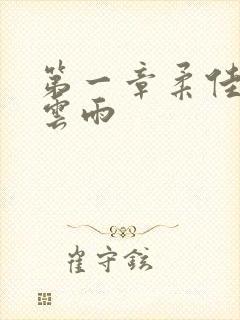 第一章柔佳
雲雨
崔守鉉